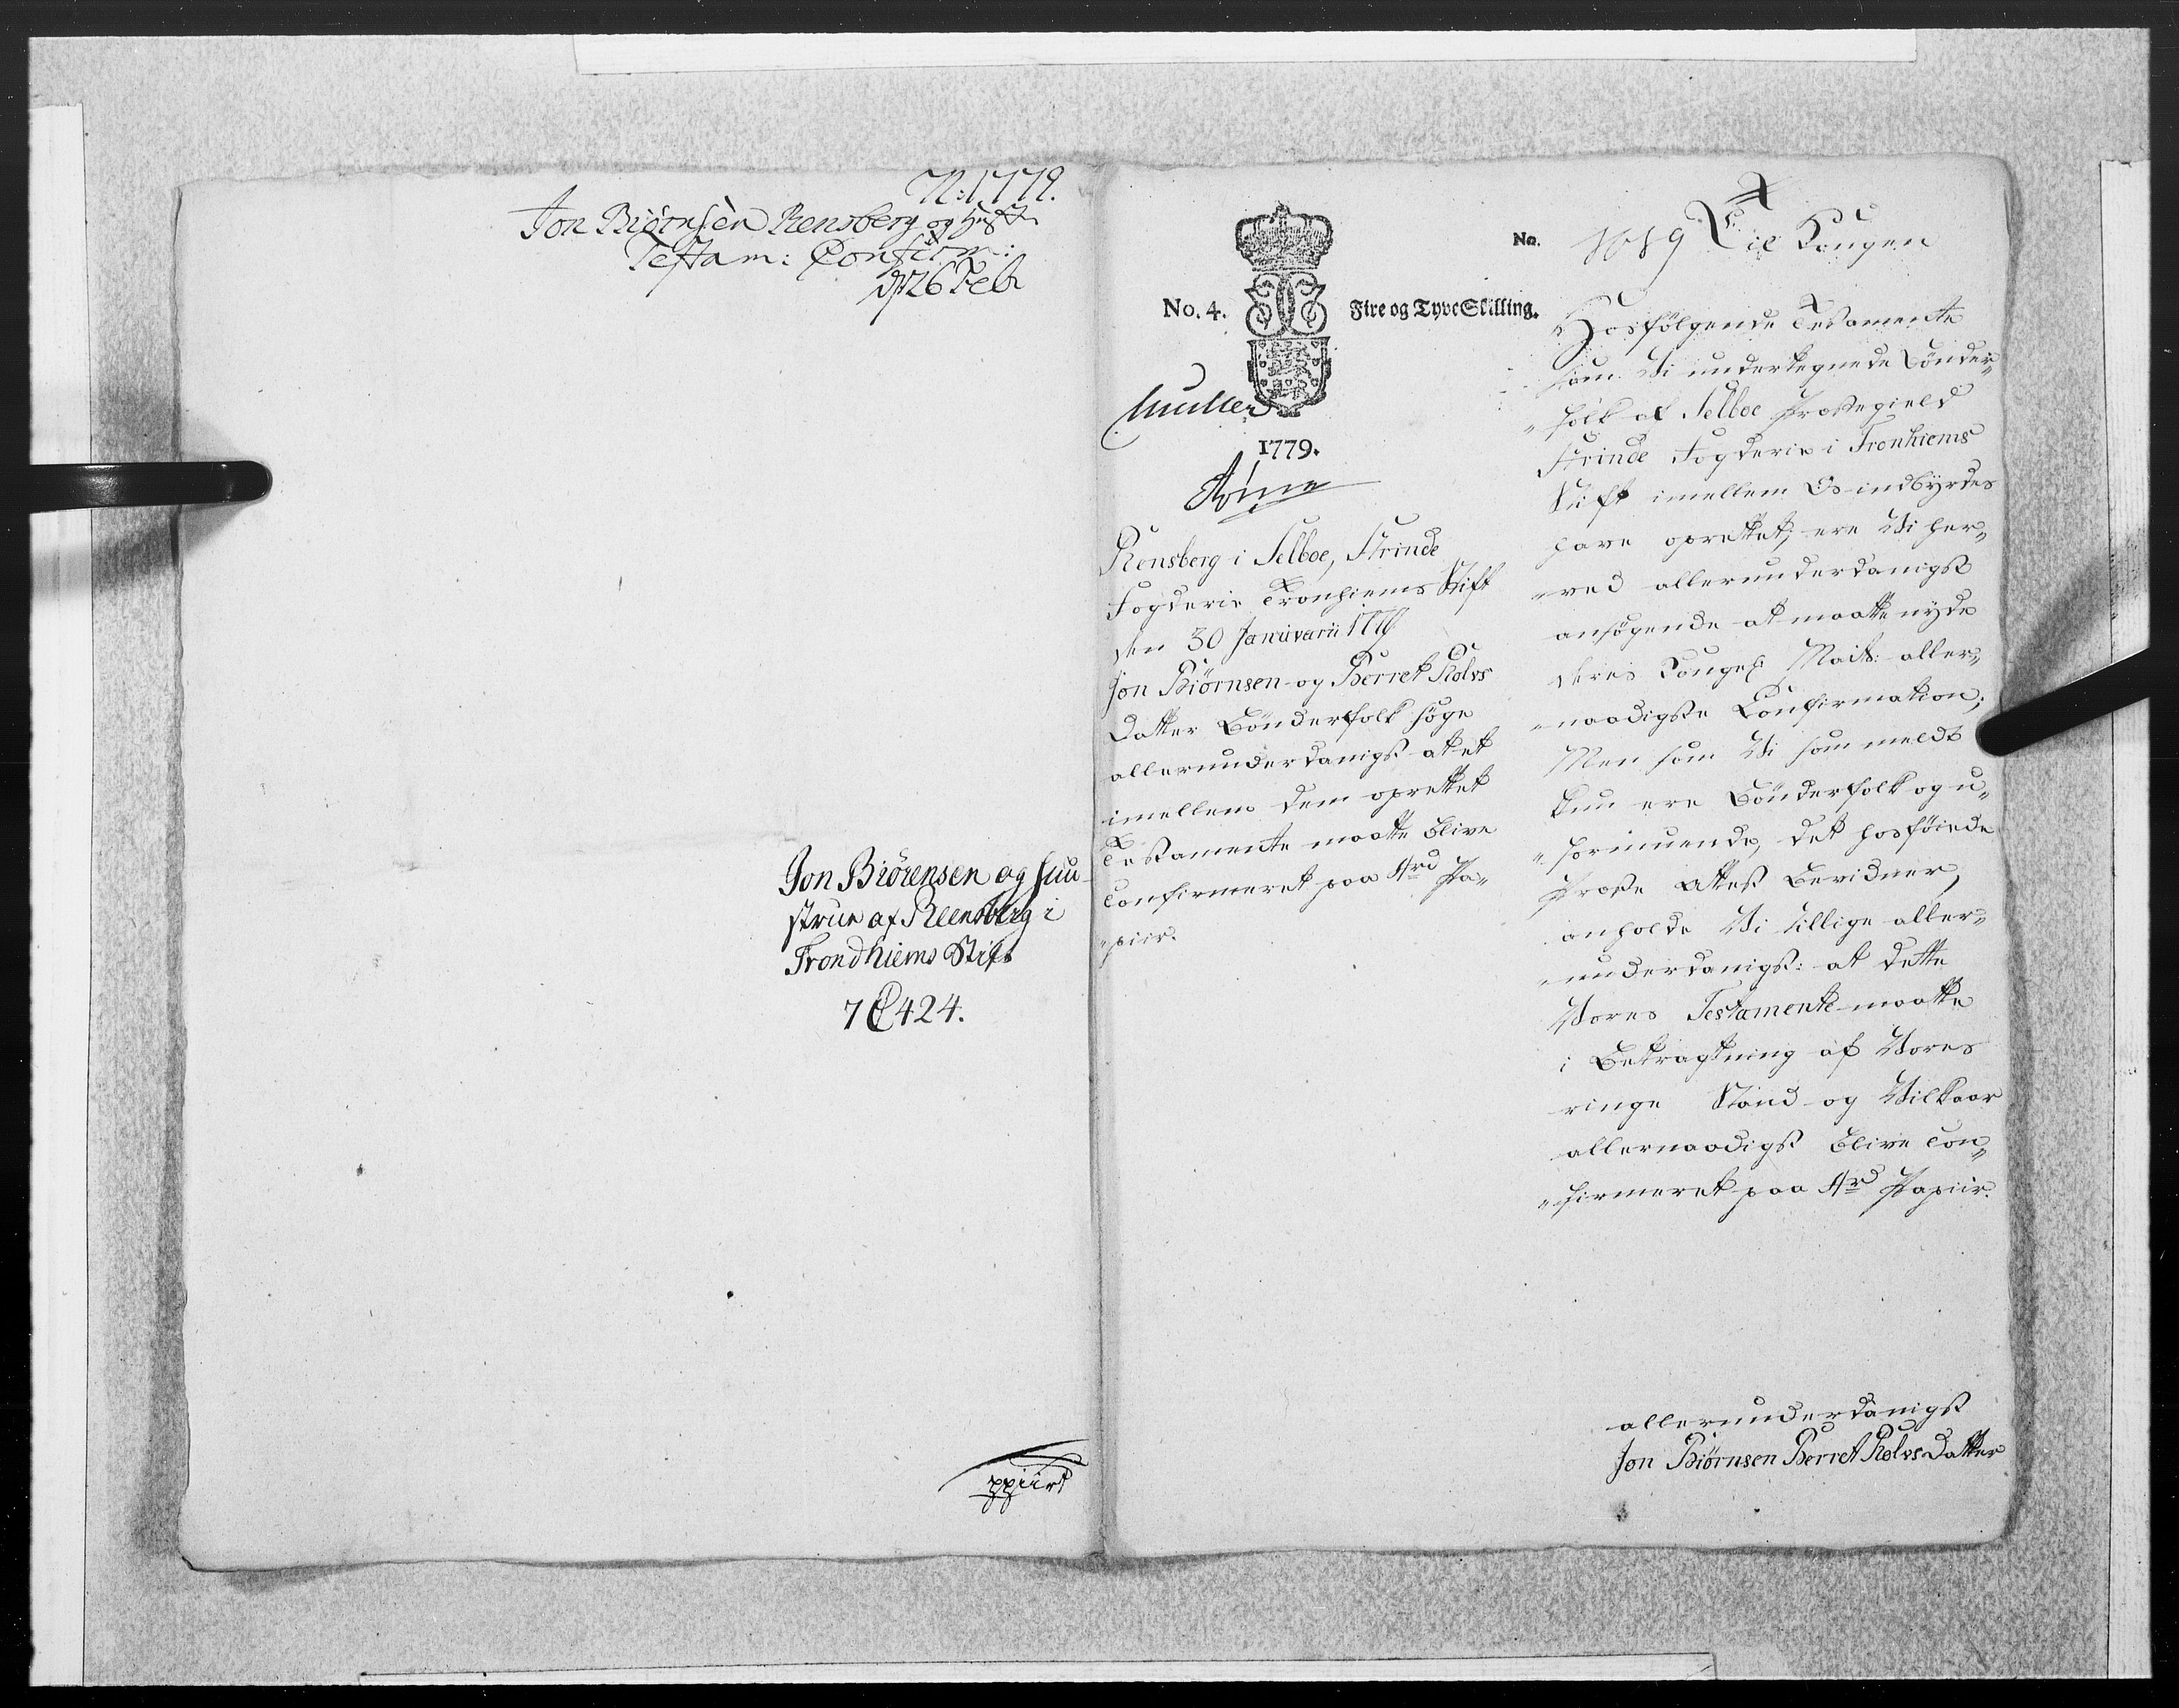 N: 1779.
Jon Biørnsen Rensberg og Hust
Testam: Confirm:
d. 26 Feb
Jon Biörensen og huu-
strue af Reensberg i
Trondhiems Stift
7 C 424.
No. 4.
Fire og Tyve Skilling.
1779.
Rensberg i Selboe, Strinde
Fogderie Tronhiems Stift
den 30 Januvarii 1779
Jon Biörnsen og Berret Rolvs
Datter Bönderfolk söge
allerunderdanigst at et
imellem dem oprettet
Testamente maatte blive
Confirmeret paa 4rd Pa„
„piir.
No. 1019 Til Kongen
Hosfölgende Testamente
som Vi undertegnede Bönder„
„folk af Selboe Præstegield
Strinde Fogderie i Tronhiems
Stift imellem Os indbyrdes
have oprettet, ere Vi her„
„ved allerunderdanigst
ansögende at maatte nyde
Deres Kongel: Maits: aller„
„naadigste Confirmation;
Men som Vi som meldt
kun ere Bönderfolk og u„
„formuende, det hosföiede
Præste Attest bevidner,
anholde Vi tillige aller„
„underdanigst: at dette
Vores Testamente maatte
i Betragtning af Vores
ringe Stand og Vilkaar
allernaadigst blive Con„
„firmeret paa 4rd Papiir.
allerunderdanigst
Jon Biörnsen Berret Rolvs Datter